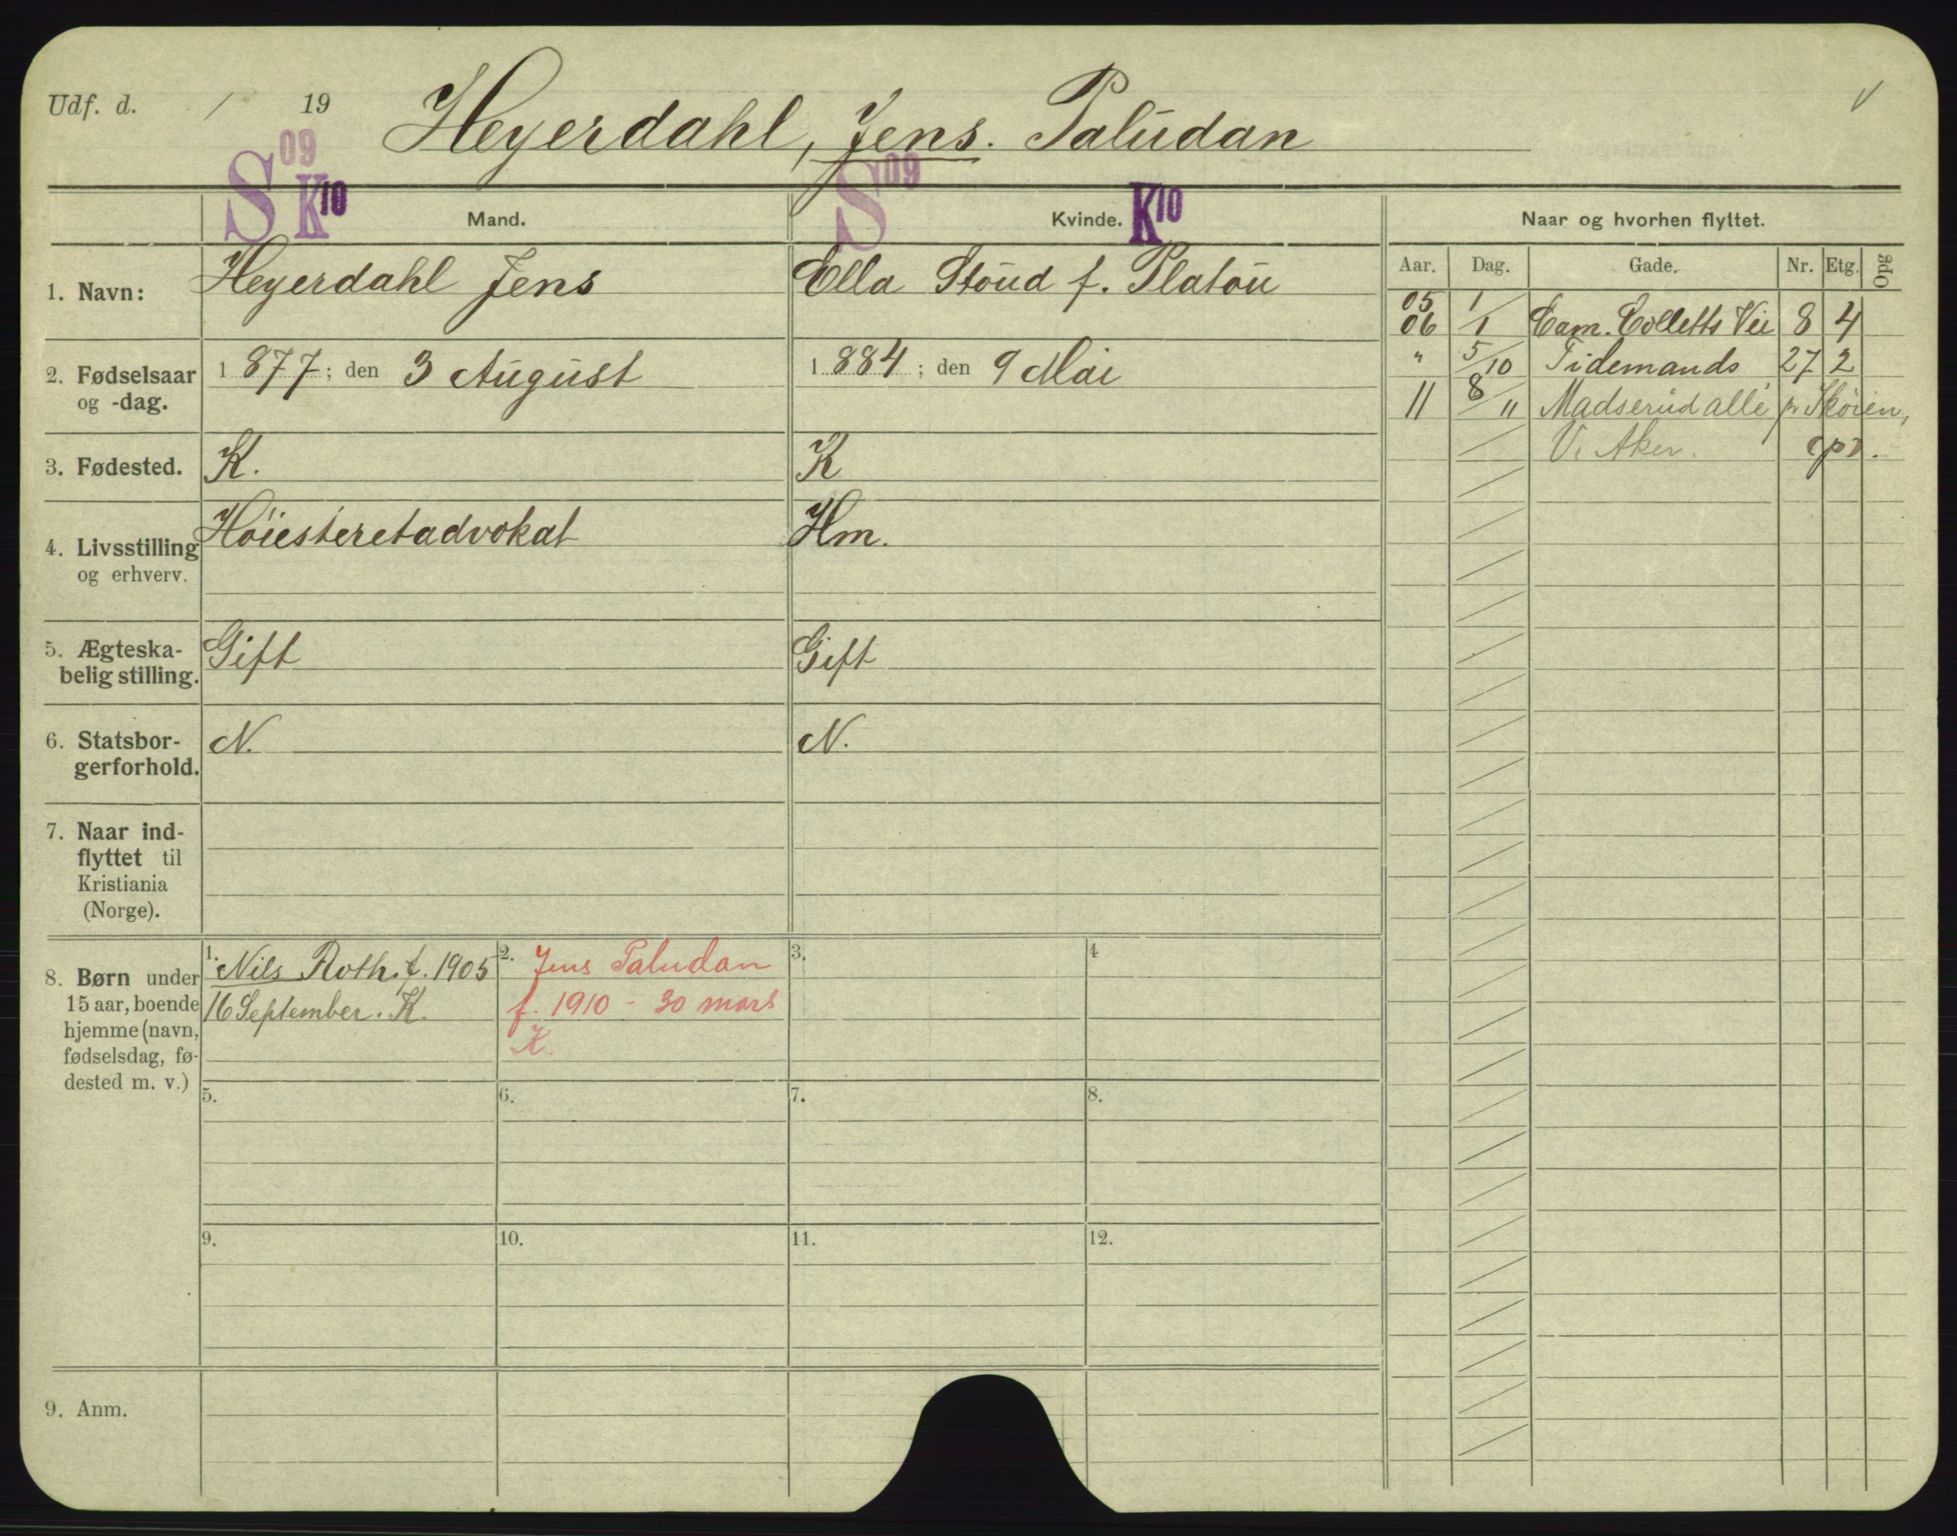 Udf. d. / 19
Heyerdahl, Jens. Paludan
S 09 K 10
S 09 K 10
Mand.
Kvinde.
Naar og hvorhen flyttet.
Aar. Dag. Gade. Nr. Etg. Opg
1. Navn: Heyerdahl Jens
Ella Stoud f. Platou
2. Fødselsaar og -dag.
1877; den 3 August
1884; den 9 Mai
3. Fødested. K.
K
4. Livsstilling og erhverv.
Høiesteretadvokat
Hm.
5. Ægteska-
belig stilling.
Gift
Gift
6. Statsbor-
gerforhold.
N.
N.
7. Naar ind-
flyttet til
Kristiania
(Norge).
8. Børn under
15 aar, boende
hjemme (navn,
fødselsdag, fø-
dested m. v.)
1. Nils Roth. f. 1905
16 September. K.
2. Jens Paludan
f. 1910 - 30 mars
K.
3.
4
5.
6.
7.
8.
9.
10.
11.
12.
9. Anm.
05 1/
06 /1 Cam. Colletts Vei 8 4
" 5/10 Tidemands 27 2
11 8/11 Madserud allé pr Skøien,
V. Aker.